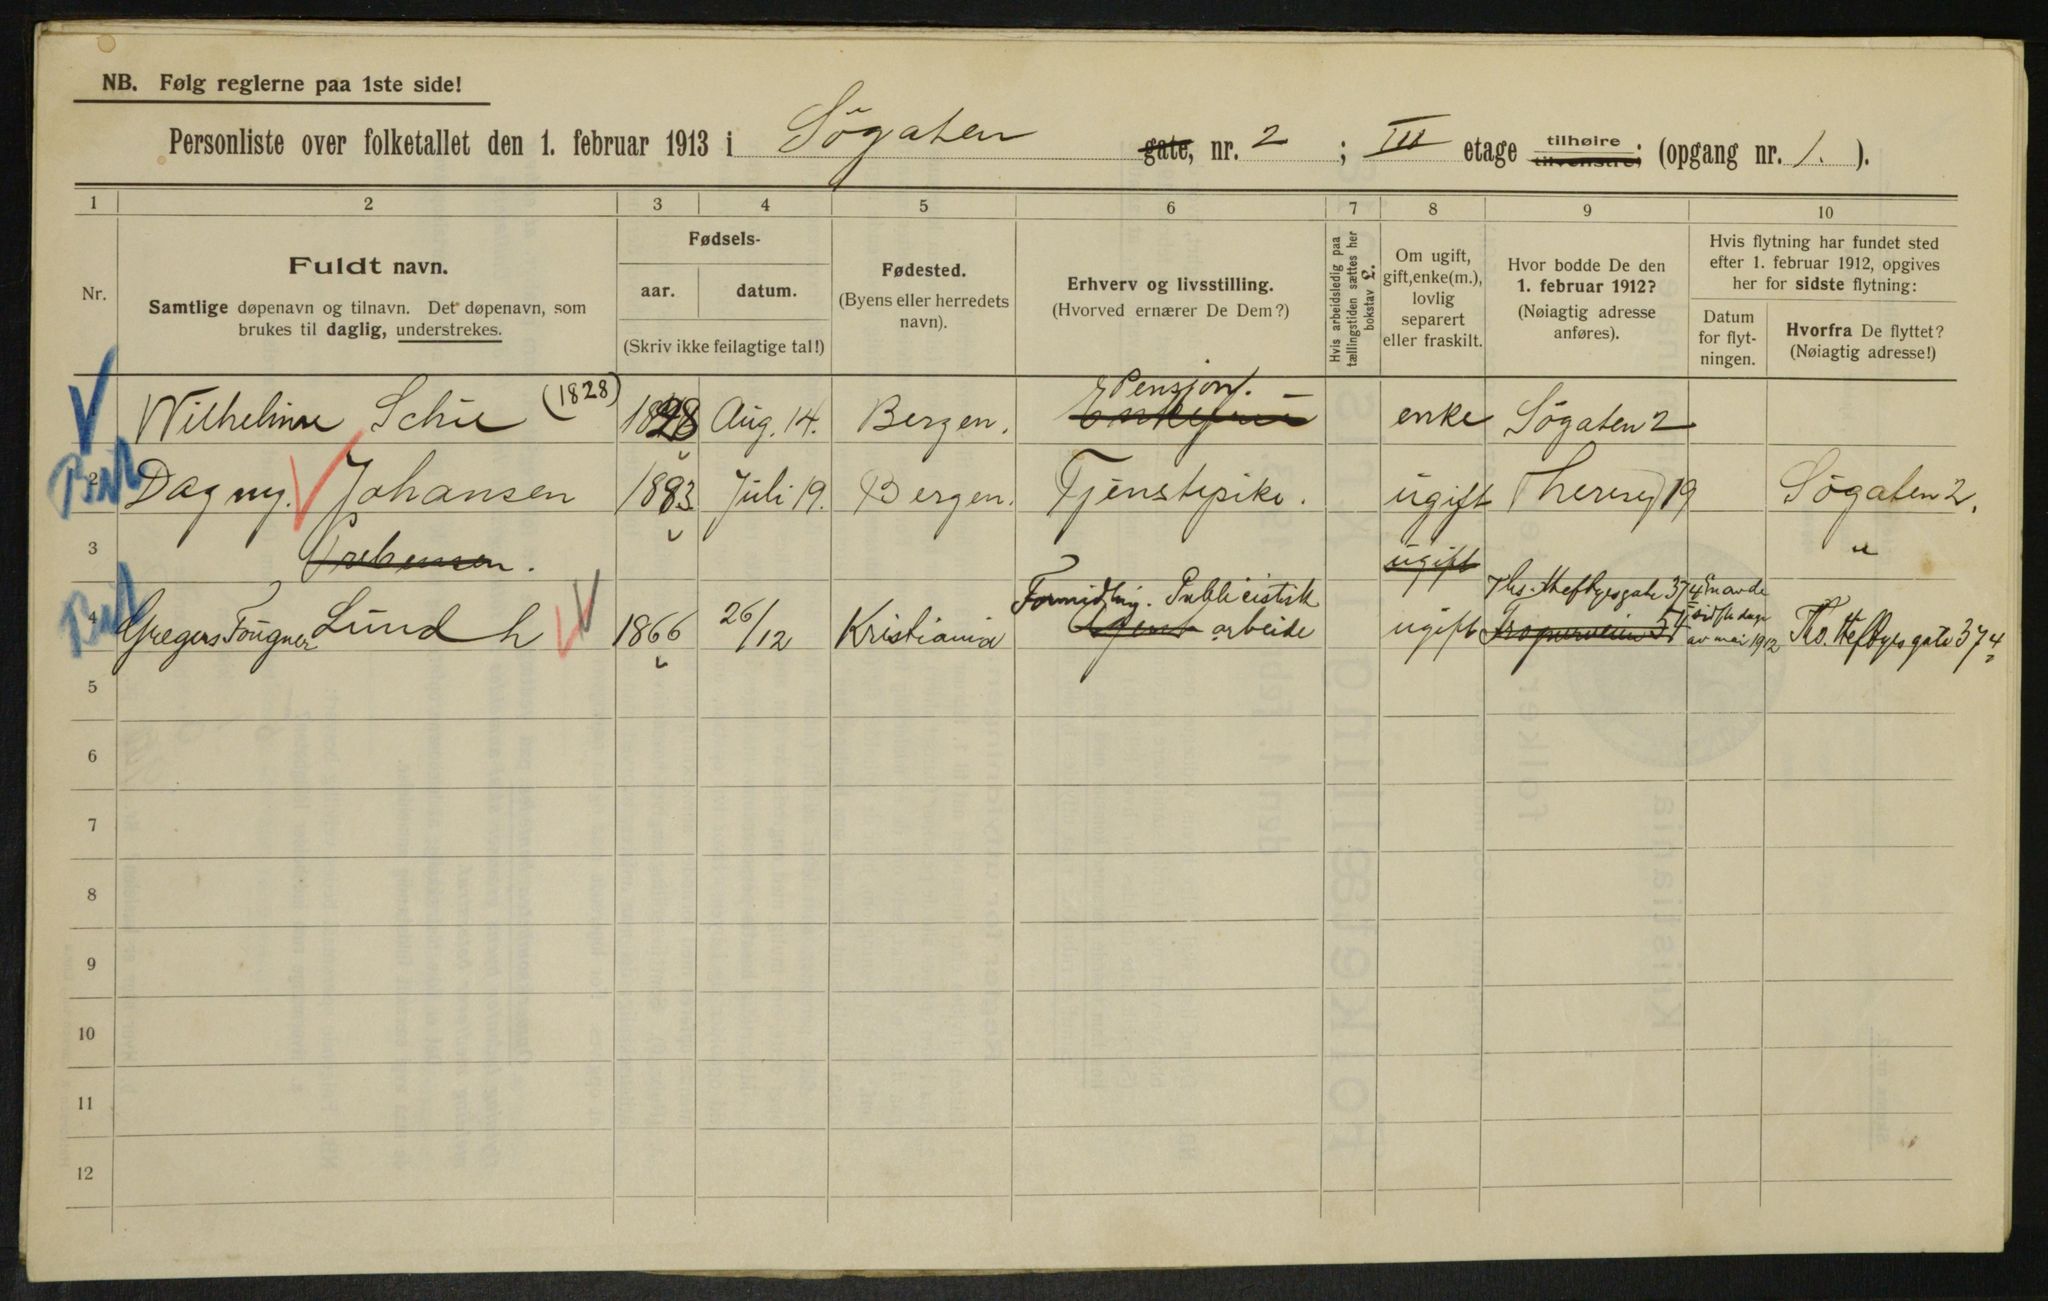 NB. Følg reglerne paa 1ste side!
Personliste over folketallet den 1. februar 1913 i Søgaten gate, nr. 2 ; III etage tilhøire tilvenstre; (opgang nr. 1. ).
1 2 3 4 5 6 7 8 9 10
Nr.
Fuldt navn.
Samtlige døpenavn og tilnavn. Det døpenavn, som
brukes til daglig, understrekes.
Fødsels-
aar. datum.
(Skriv ikke feilagtige tal!)
Fødested.
(Byens eller herredets
navn).
Erhverv og livsstilling.
(Hvorved ernærer De Dem?)
Hvis arbeidsledig paa
tællingstiden sættes her
bokstav L.
Om ugift,
gift, enke(m.),
lovlig
separert
eller fraskilt.
Hvor bodde De den
1. februar 1912?
(Nøiagtig adresse
anføres).
Hvis flytning har fundet sted
efter 1. februar 1912, opgives
her for sidste flytning:
Datum
for flyt-
ningen.
Hvorfra De flyttet?
(Nøiagtig adresse!)
Wilhelmine Schie (1828) 1828 Aug. 14. Bergen. Pensjon. enke Søgaten 2
2 Dagny Johansen 1883 Juli 19. Bergen. Tjenstepike. ugift 19 Søgaten 2.
3 ugift "
4 Gregers Fougner Lund h 1866 26/12 Kristiania Formidling. Publicistisk
Agent arbeide ugift Ths. Heftyesgate 37 4 av mai 1912 Th. Heftyesgate 37 4
5
6
7
8
9
10
11
12